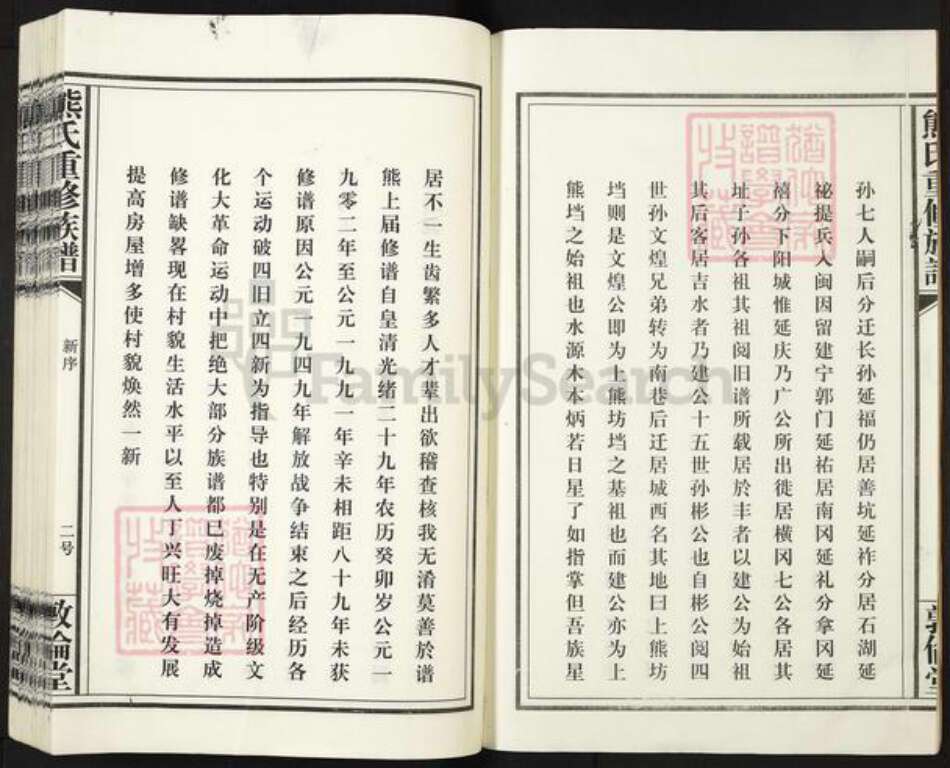 孙七人嗣后分迁长孙延福仍居善坑延祚分居石湖延
祕提兵入闽因留建宁郭门延祐居南冈延礼分拿冈延
禧分下阳城惟延庆乃广公所出徙居横冈七公各居其
址子孙各祖其祖阅旧谱所载居於丰者以建公为始祖
其后客居吉水者乃建公十五世孙彬公也自彬公阅四
世孙文煌兄弟转为南巷后迁居城西名其地曰上熊坊
垱则是文煌公即为上熊坊垱之基祖也而建公亦为上
熊垱之始祖也水源木本炳若日星了如指掌但吾族星
居不一生齿繁多人才辈出欲稽查核我无淆莫善於谱
熊上届修谱自皇清光绪二十九年农历癸卯岁公元一
九零二年至公元一九九一年辛未相距八十九年未获
修谱原因公元一九四九年解放战争结束之后经历各
个运动破四旧立四新为指导也特别是在无产阶级文
化大革命运动中把绝大部分族谱都已废掉烧掉造成
修谱缺畧现在村貌生活水平以至人丁兴旺大有发展
提高房屋增多使村貌焕然一新
熊氏重修族谱
新序
二号
敦倫堂
FamilySearch